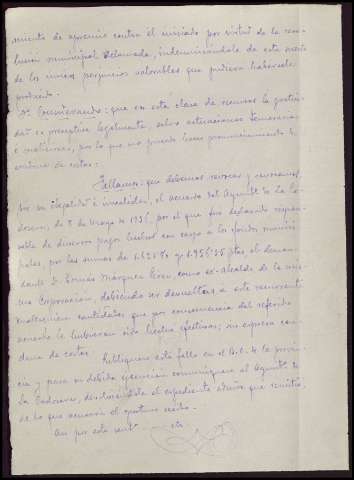 miento de apremio contra el iniciado por virtud de la reso-
lución municipal reclamada, indemnizándole de este modo
de los únicos perjuicios valorables que pudiera habersele
producido.
Dº. Considerando: que en esta clase de recursos la gratui-
dad es preceptiva legalmente, salvo actuaciones temerarias
o maliciosas, por lo que no procede hacer pronunciamiento de
condena de costas.
Fallamos: que debemos revocar y revocamos,
por su ilegalidad e invalidez, el acuerdo del Ayunt.º de La Ca-
rolina, de 5 de Mayo de 1936, por el que fue declarado respon-
sable de diversos pagos hechos con cargo a los fondos munici-
pales, por las sumas de y ptas, el deman-
dante D. Tomás Márquez como ex-alcalde de la mis-
ma Corporación, debiendo ser devueltas a este recurrente
cualesquiera cantidades que por consecuencia del referido
acuerdo le hubieran sido hechas efectivas; sin expresa con-
dena de costas. Publíquese este fallo en el B.O. de la provin-
cia y para su debida ejecución comuníquese al Ayunt.º de
La Carolina, devolviéndole el expediente admvo que remitió,
de lo que acusará el oportuno recibo.
Así por esta sent etc.